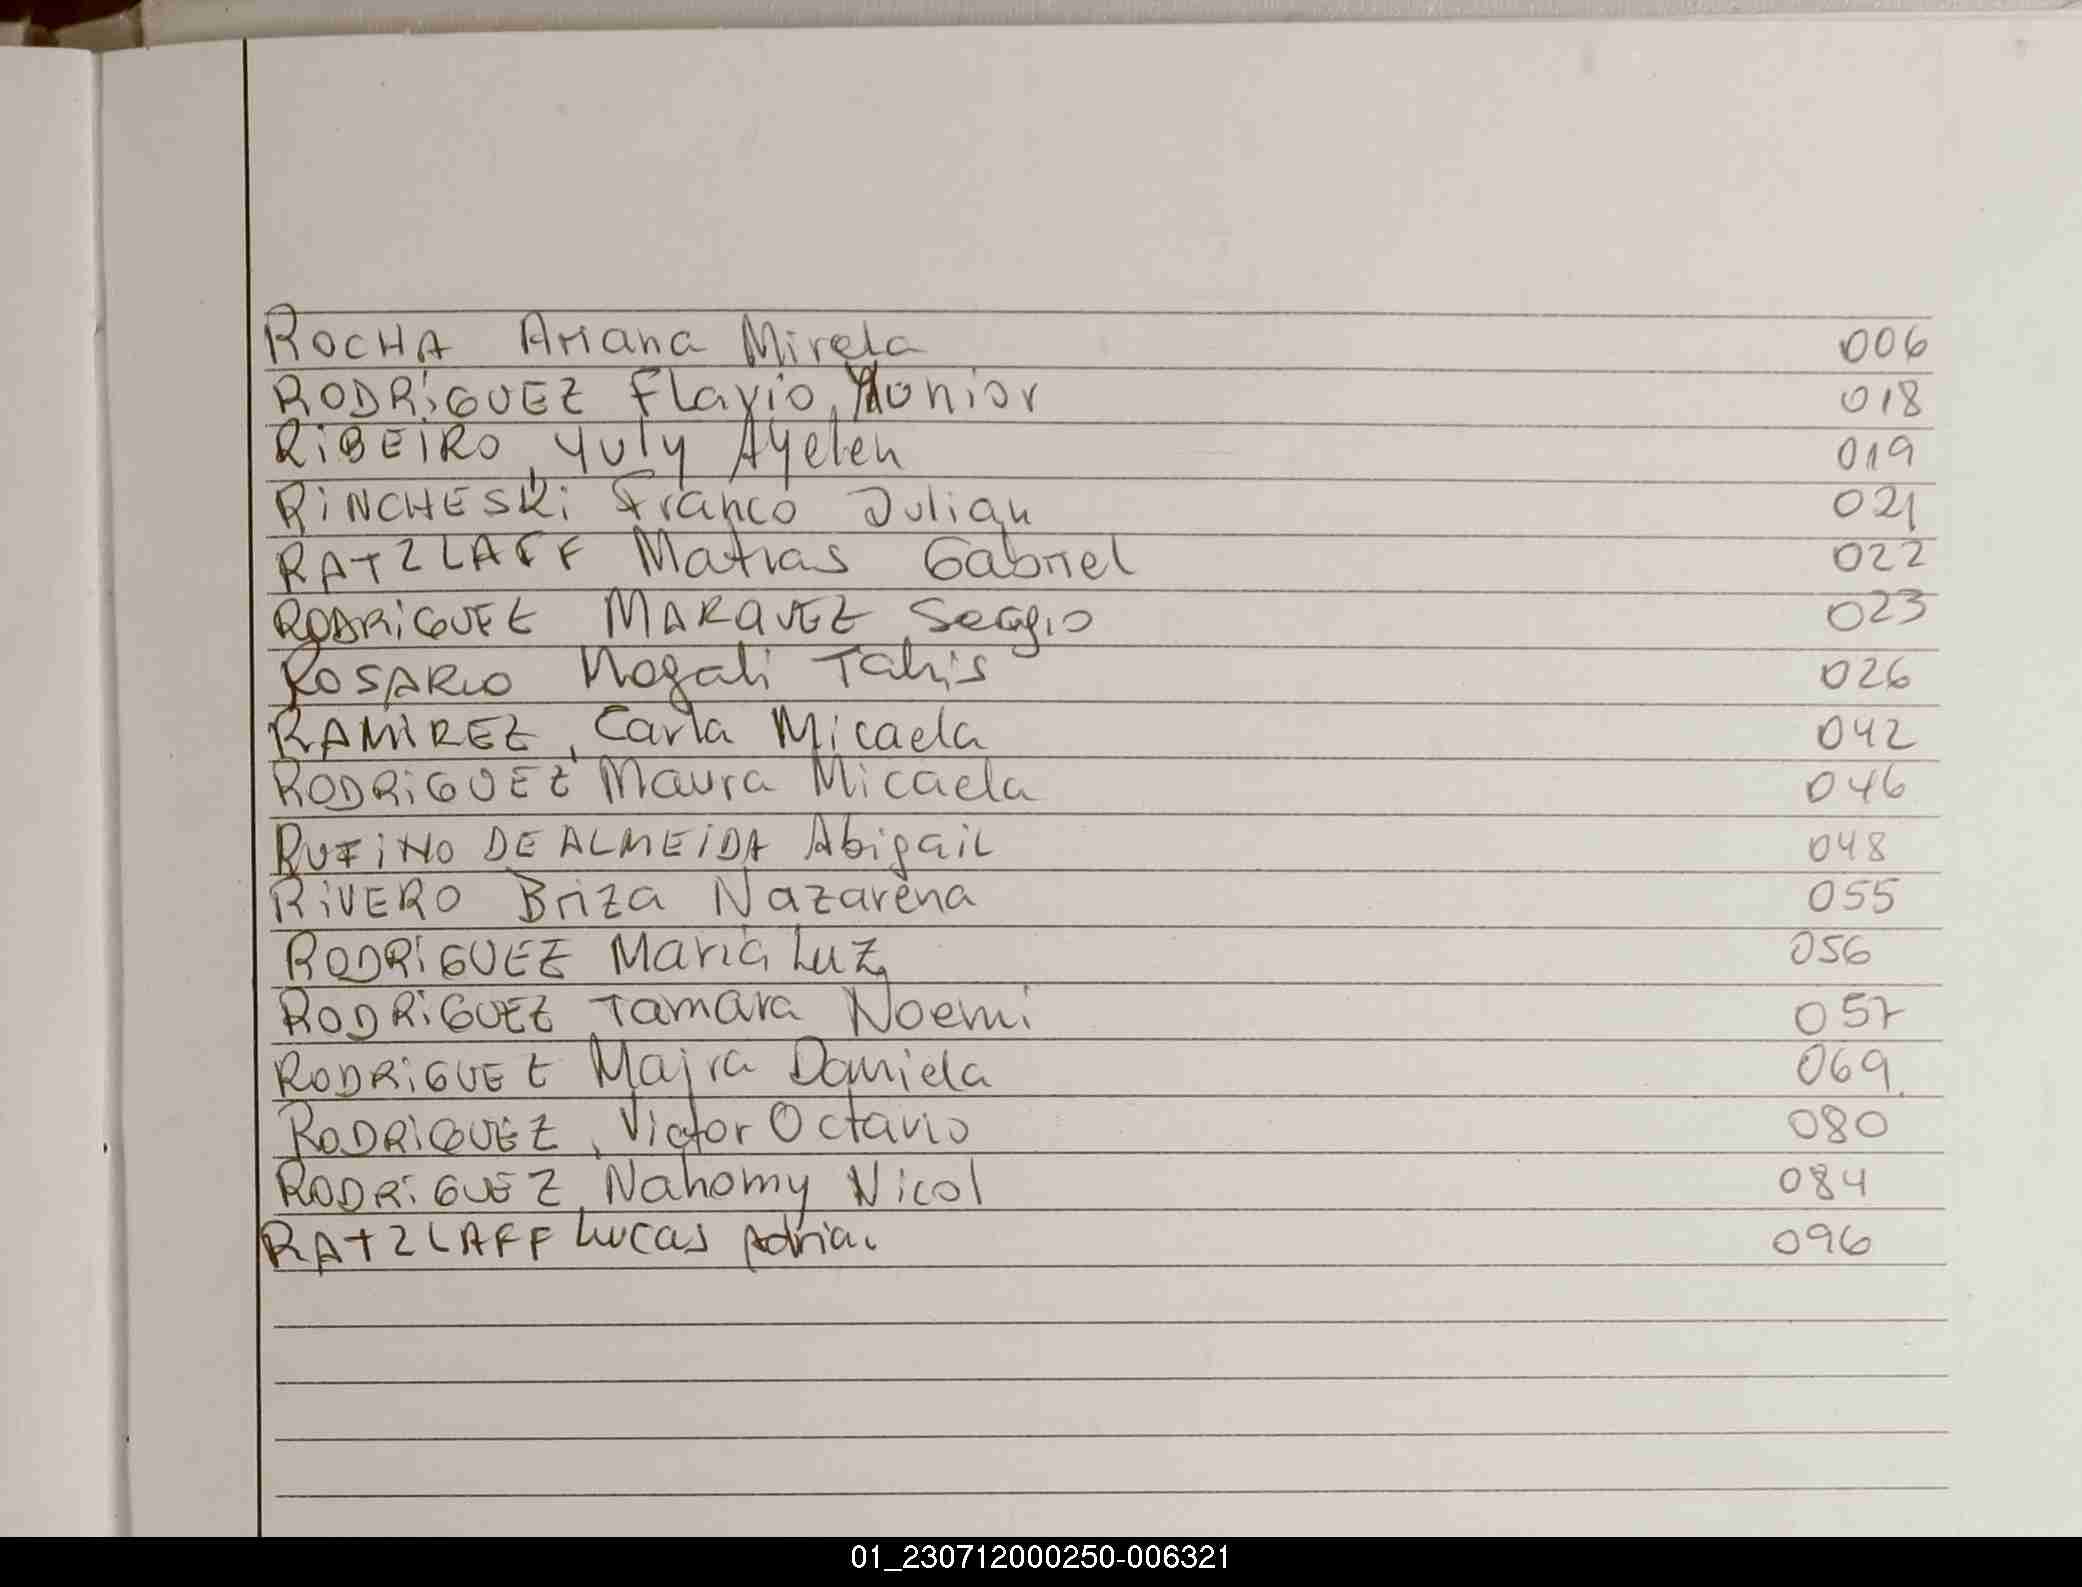 ROCHA Ariana Mirela 006
RODRIGUEZ Flavio, Yunior 018
RIBEIRO, Yuly Ayelen 019
RINCHESKI Franco Julian 021
RATZLAFF Matias Gabriel 022
RODRIGUEZ MARQUEZ Sergio 023
ROSARIO Magali Tahis 026
RAMIREZ, Carla Micaela 042
RODRIGUEZ Maura Micaela 046
RUFINO DE ALMEIDA Abigail 048
RIVERO Briza Nazarena 055
RODRIGUEZ Maria Luz 056
RODRIGUEZ Tamara Noemi 057
RODRIGUEZ Maira Daniela 069
RODRIGUEZ, Victor Octavio 080
RODRIGUEZ, Nahomy Nicol 084
RATZLAFF Lucas Adrian 096
01_230712000250-006321